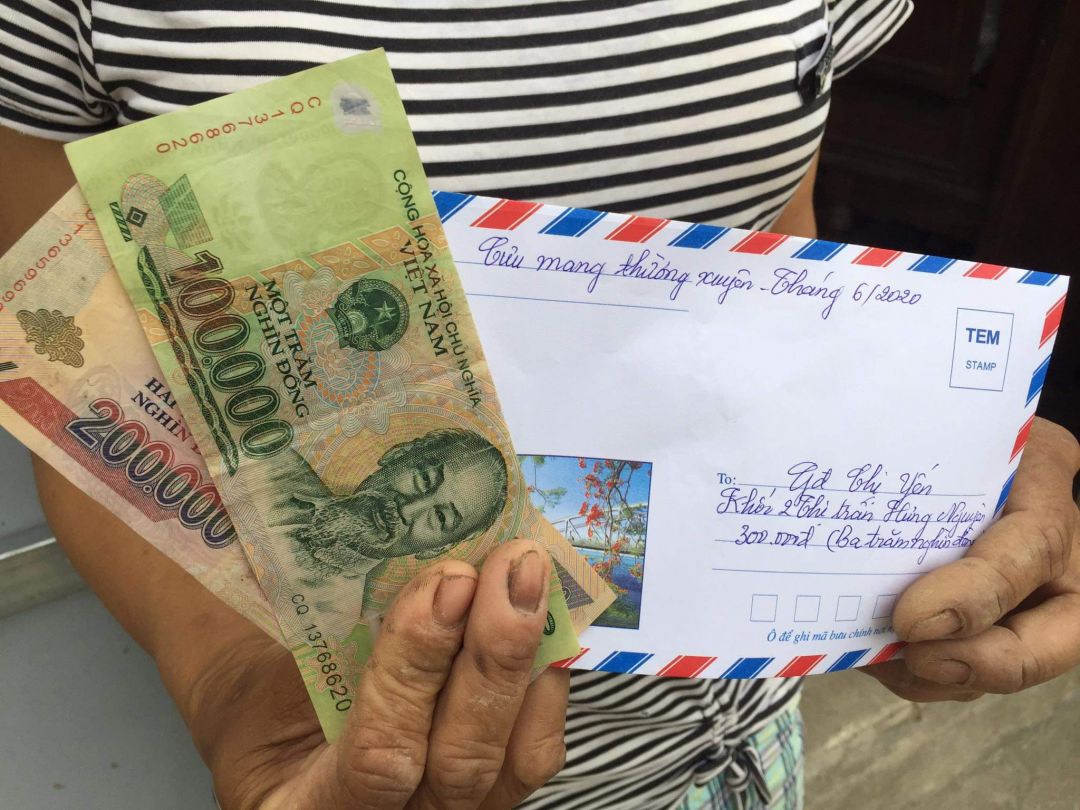 CQ 13768620
CỘNG HÒA XÃ HỘI CHỦ NGHĨA
VIỆT NAM
100.000
MỘT TRĂM
NGHÌN ĐỒNG
CQ 13768620
HAI
NGHÌN
200.000
Cưu mang thường xuyên - Tháng 6/2020
TEM
STAMP
To: Gđ Thị Yến
Khối 2 Thị trấn Hưng Nguyên
300.000đ (Ba trăm nghìn đồng
Ô để ghi mã bưu chính nơi